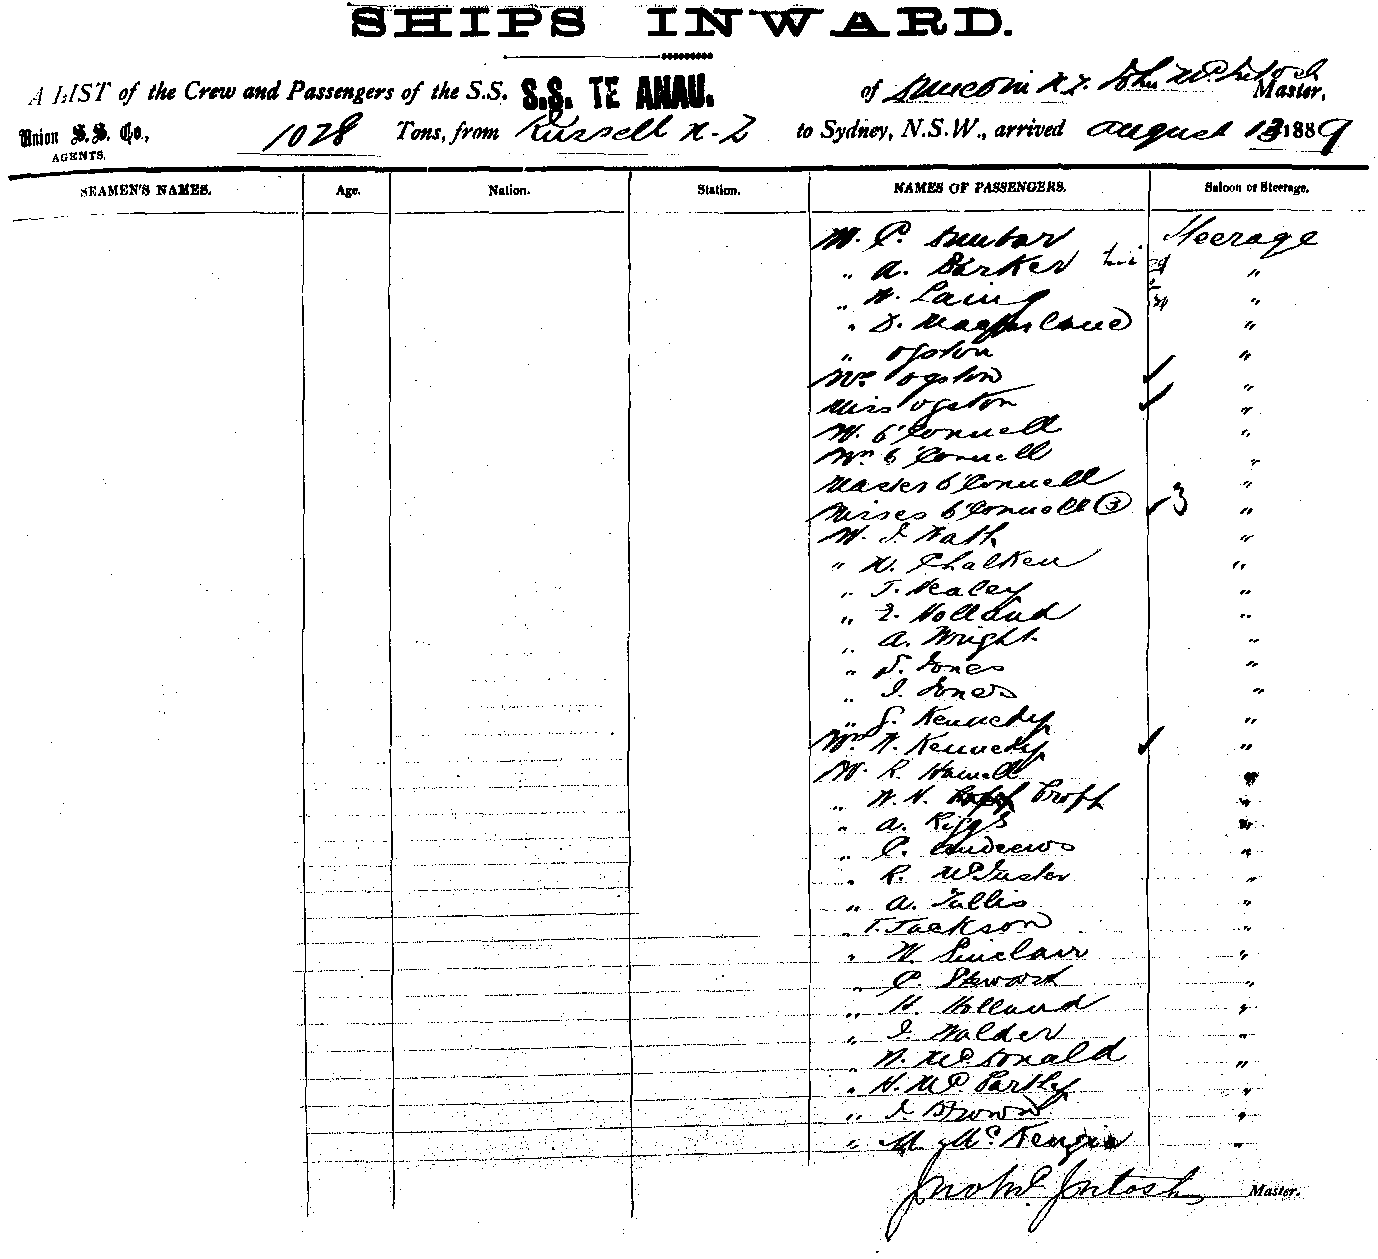 SHIPS INWARD.
A LIST of the Crew and Passengers of the S.S. S.S. TE ANAU. of Dunedin N.Z. John McIntosh Master,
Union S.S. Co., AGENTS. 1028 Tons, from Russell N-Z to Sydney, N.S.W., arrived August 13 1889
SEAMEN'S NAMES. Age. Nation. Station. NAMES OF PASSENGERS. Saloon or Steerage.
Mr. P. Dunbar Steerage
„ A. Barker „
„ W. Laing „
„ D. Macfarlane „
„ Ogston „
Mrs Ogston ✓ „
Miss Ogston ✓ „
Mr. O'Connell „
Mrs O'Connell „
Master O'Connell „
Misses O'Connell (3) ✓ 3 „
Mr. J. Nath „
„ W. Chalken „
„ T. Healey „
„ E. Holland „
„ A. Wright „
„ S. Jones „
„ J. Jones „
„ G. Kennedy „
Mrs W. Kennedy ✓ „
Mr R. Hamell „
„ W. H. Cropp „
„ A. Riggs „
„ C. Andrews „
„ R. McFuster „
„ A. Tullis „
„ T. Jackson „
„ W. Sinclair „
„ C. Steward „
„ H. Holland „
„ J. Walder „
„ N. McDonald „
„ H. McPartly „
„ J. Brown „
„ M McKenzie „
Jno McIntosh Master.